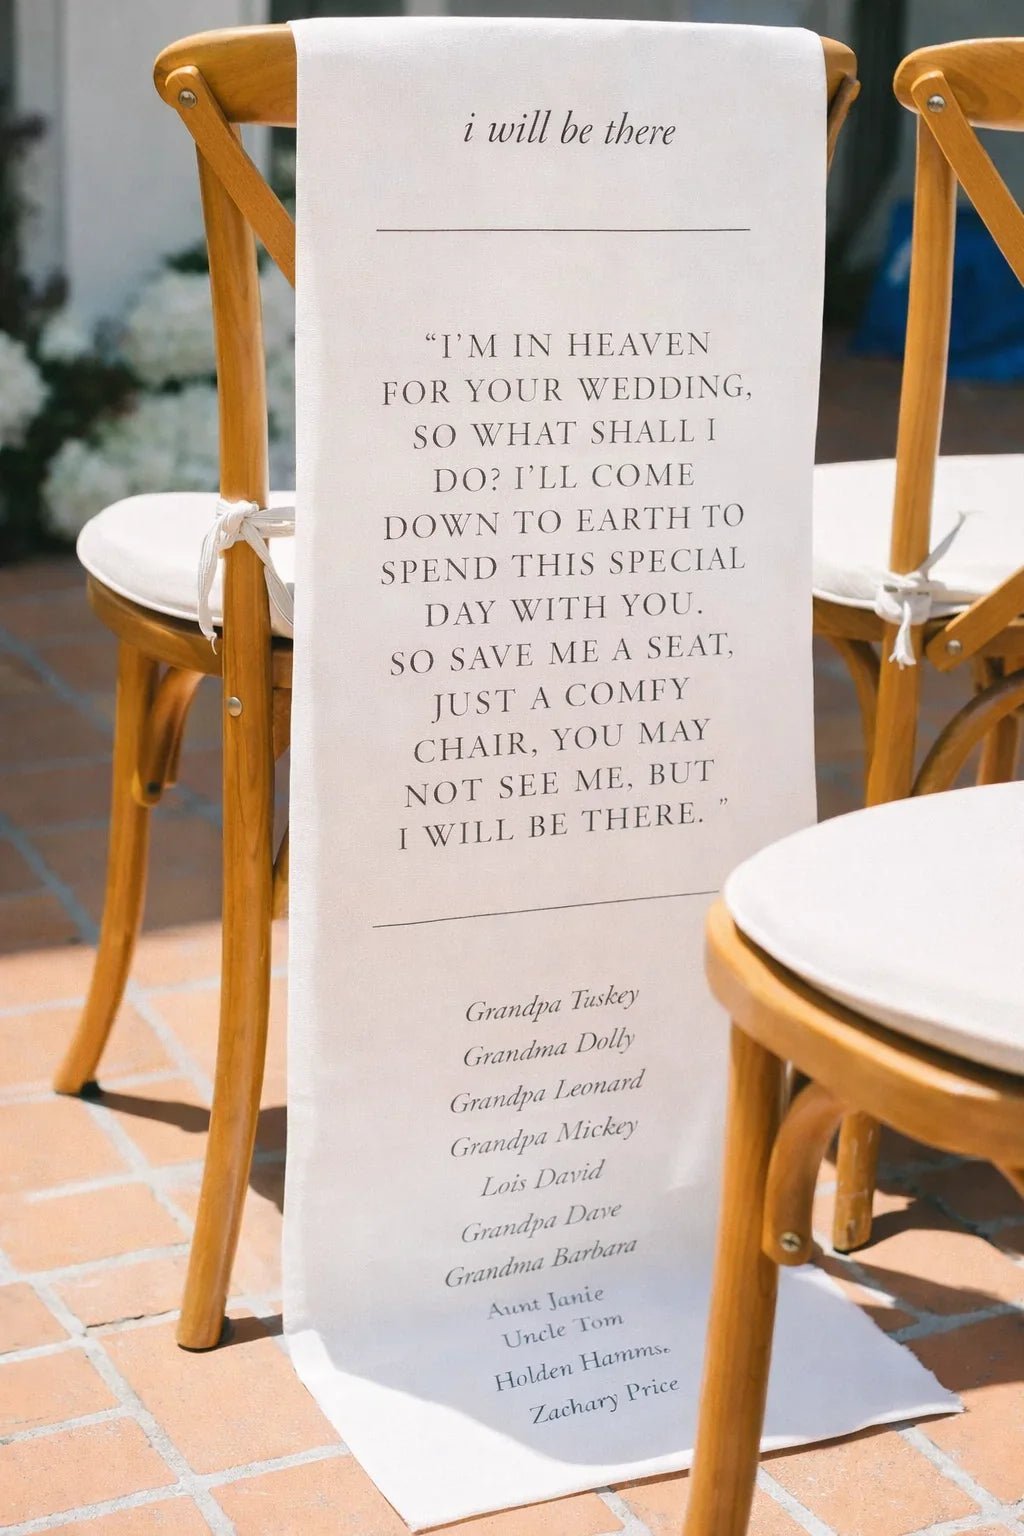 i will be there
“I’M IN HEAVEN
FOR YOUR WEDDING,
SO WHAT SHALL I
DO? I’LL COME
DOWN TO EARTH TO
SPEND THIS SPECIAL
DAY WITH YOU.
SO SAVE ME A SEAT,
JUST A COMFY
CHAIR, YOU MAY
NOT SEE ME, BUT
I WILL BE THERE. ”
Grandpa Tuskey
Grandma Dolly
Grandpa Leonard
Grandpa Mickey
Lois David
Grandpa Dave
Grandma Barbara
Aunt Janie
Uncle Tom
Holden
Zachary Price